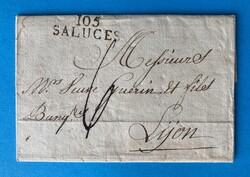 105
SALUCES
Messieurs
Mrs Veuve Guérin et fils
Banqrs
Lijon